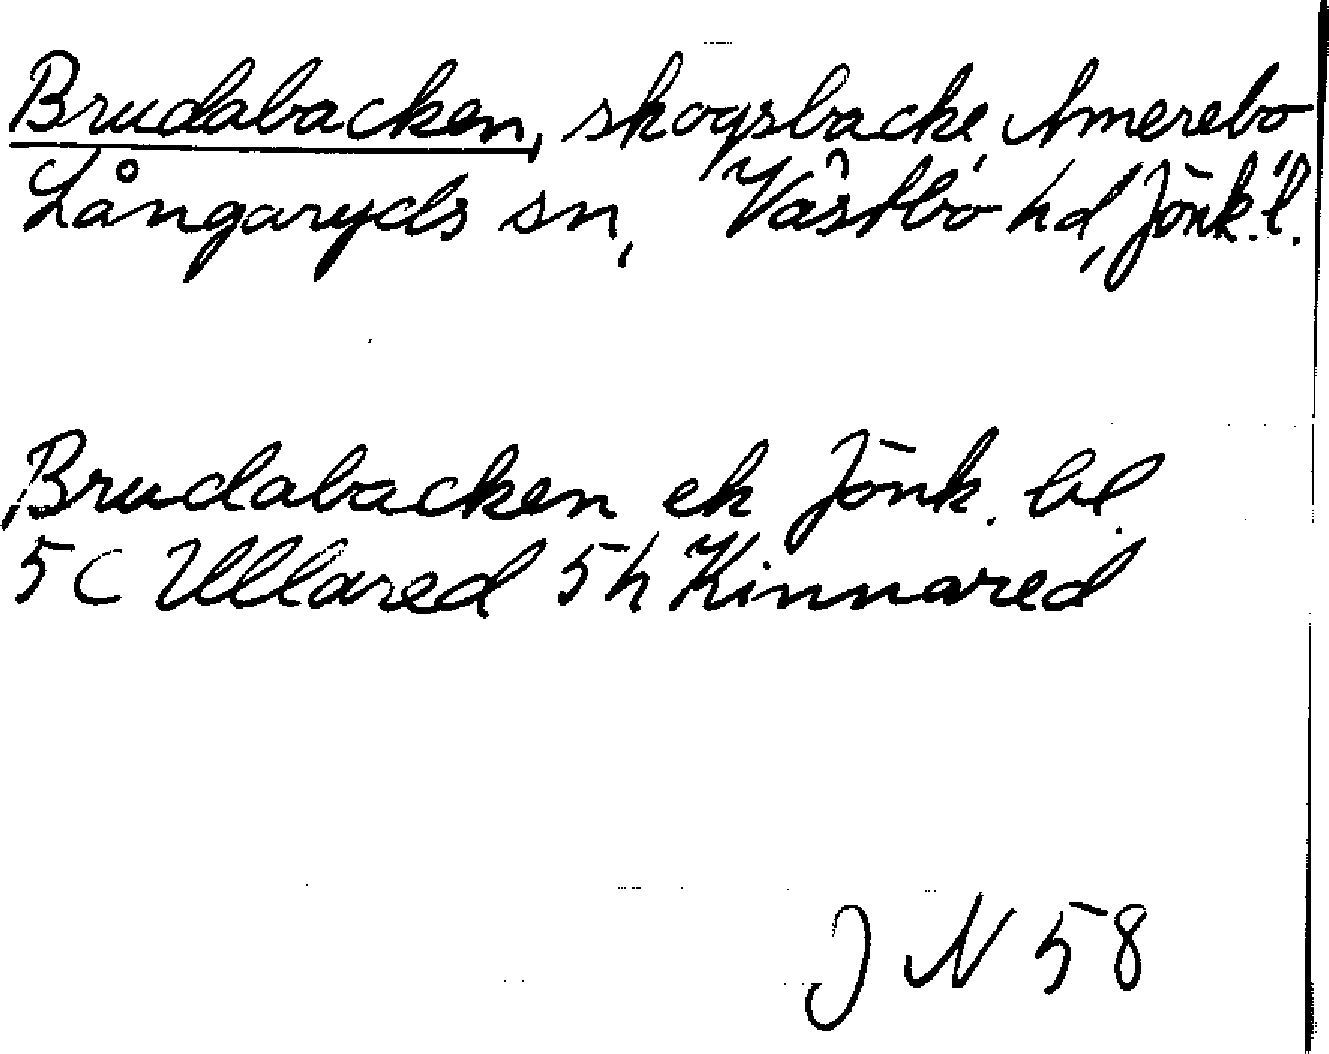 Brudabacken, skogsbacke, Amerebo
Långaryds sn, Västbo hd, Jönk. l.
Brudabacken ek Jönk. bl.
5 C Ullared 5 h Kinnared
J N 58